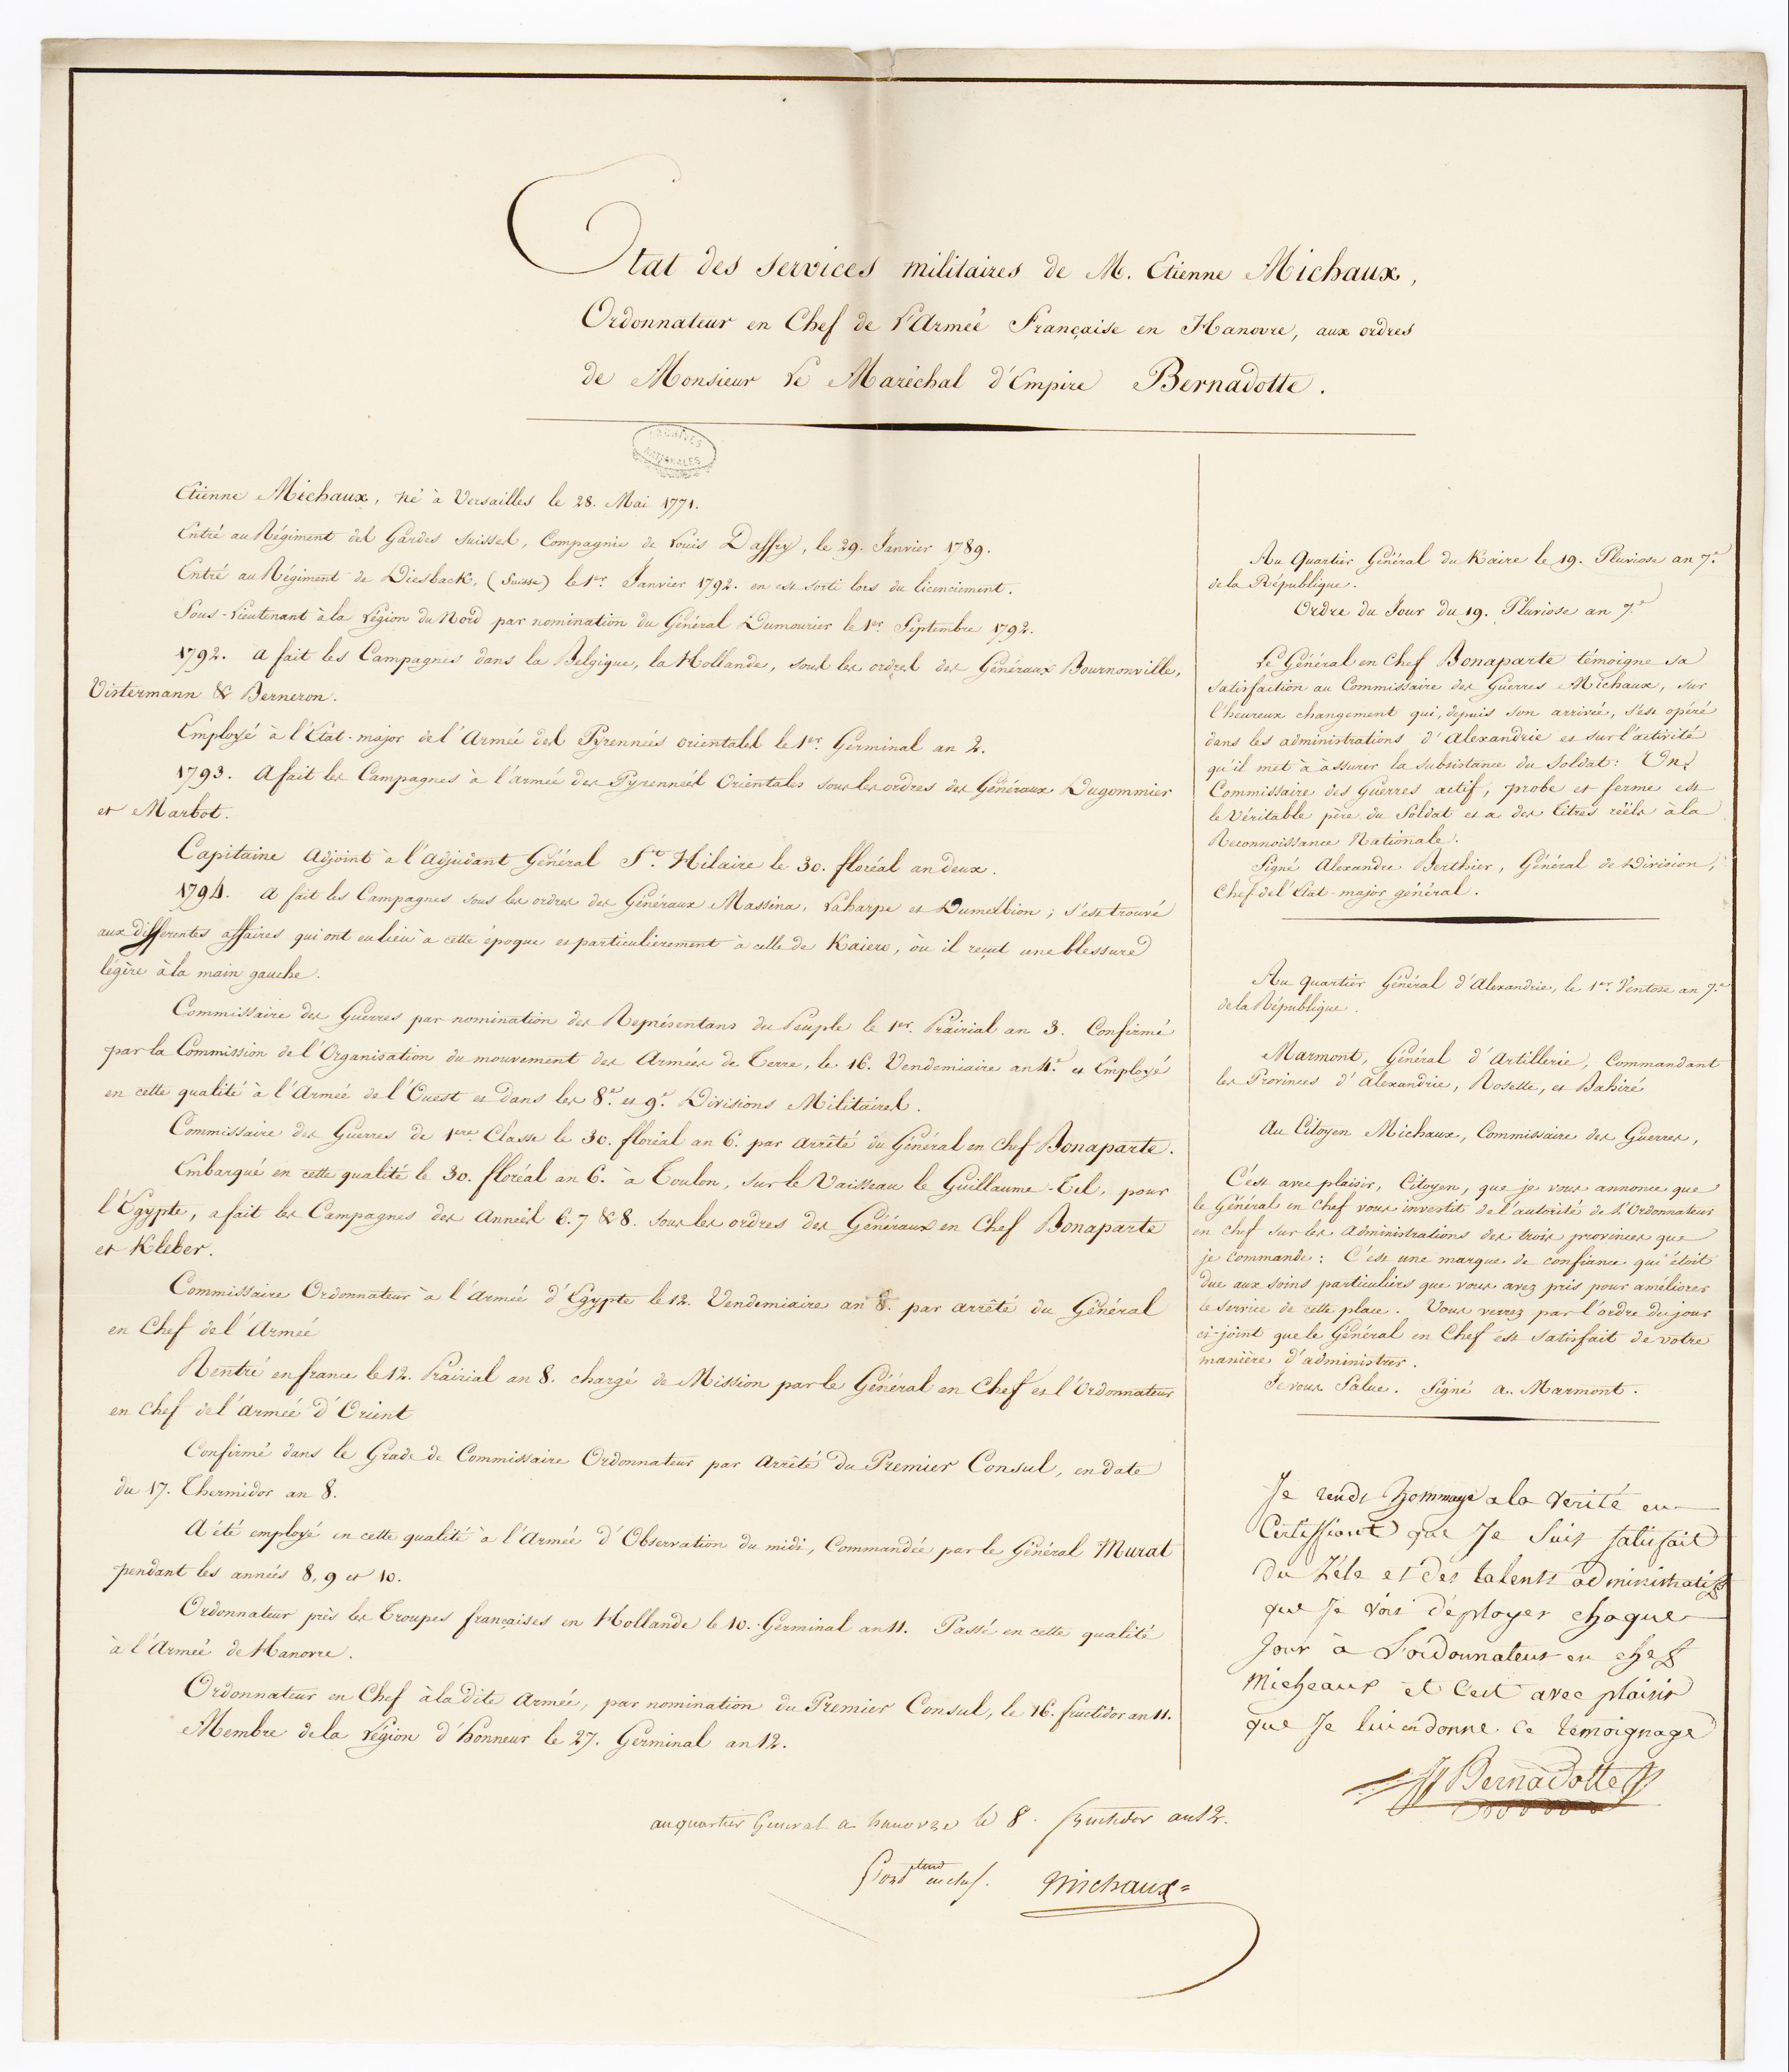 Etat des Services militaires de M. Etienne Michaux,
Ordonnateur en Chef de l'Armée Française en Hanovre, aux ordres
de Monsieur le Maréchal d'Empire Bernadotte.
ARCHIVES
NATIONALES
Etienne Michaux, né à Versailles le 28. Mai 1771.
Entré au Régiment des Gardes Suisses, Compagnie de Louis Daffry, le 29. Janvier 1789.
Entré au Régiment de Diesback, (Suisse) le 1er. Janvier 1792. en est sorti lors du licenciement.
Sous-Lieutenant à la Légion du Nord par nomination du Général Dumourier le 1er. Septembre 1792.
1792. a fait les Campagnes dans la Belgique, la Hollande, sous les ordres des Généraux Bournonville,
Vistermann & Berneron.
Employé à l'Etat-major de l'Armée des Pyrennées orientales le 1er. Germinal an 2.
1793. A fait les Campagnes à l'armée des Pyrennées Orientales sous les ordres des Généraux Dugommier
et Marbot.
Capitaine Adjoint à l'Adjudant Général St. Hilaire le 30. floréal an deux.
1794. a fait les Campagnes sous les ordres des Généraux Masséna, Laharpe et Dumerbion ; s'est trouvé
aux differentes affaires qui ont eu lieu à cette époque et particulierement à celle de Kaiere, où il reçut une blessure
légère à la main gauche.
Commissaire des Guerres par nomination des Représentans du Peuple le 1er. Prairial an 3. Confirmé
par la Commission de l'Organisation du mouvement des Armées de Terre, le 16. Vendemiaire an 4.e et Employé
en cette qualité à l'Armée de l'Ouest et dans les 8.e et 9.e Divisions Militaires.
Commissaire des Guerres de 1ere. Classe le 30. floréal an 6. par arrêté du Général en Chef Bonaparte.
Embarqué en cette qualité le 30. floréal an 6. à Toulon, sur le Vaisseau le Guillaume-Tel, pour
l'Egypte, a fait les Campagnes des Années 6. 7 & 8. sous les ordres des Généraux en Chef Bonaparte
et Kleber.
Commissaire Ordonnateur à l'Armée d'Egypte le 12. Vendemiaire an 8. par arrêté du Général
en Chef de l'Armée
Rentré en france le 12. Prairial an 8. chargé de Mission par le Général en Chef et l'Ordonnateur
en Chef de l'Armée d'Orient
Confirmé dans le Grade de Commissaire Ordonnateur par Arrêté du Premier Consul, en date
du 17. Thermidor an 8.
A été employé en cette qualité à l'Armée d'Observation du midi, Commandée par le Général Murat
pendant les années 8, 9 et 10.
Ordonnateur près les Troupes françaises en Hollande le 10. Germinal an 11. Passé en cette qualité
à l'Armée de Hanovre.
Ordonnateur en Chef à la dite Armée, par nomination du Premier Consul, le 16. fructidor an 11.
Membre de la Légion d'honneur le 27. Germinal an 12.
au quartier General a hanovre le 8. fructidor an 12.
en chef. Michaux
Au Quartier Général du Kaire le 19. Pluviose an 7.e
de la République.
Ordre du Jour du 19. Pluviose an 7.e
Le Général en Chef Bonaparte témoigne sa
satisfaction au Commissaire des Guerres Michaux, sur
l'heureux changement qui, depuis son arrivée, s'est opéré
dans les administrations d'Alexandrie et sur l'activité
qu'il met à assurer la subsistance du Soldat : Un
Commissaire des Guerres actif, probe et ferme est
le Véritable père du Soldat et a des titres réels à la
Reconnoissance Nationale.
Signé Alexandre Berthier, Général de Division,
Chef de l'Etat-major général.
Au quartier Général d'Alexandrie, le 1er. Ventose an 7.e
de la République.
Marmont, Général d'Artillerie, Commandant
les Provinces d'Alexandrie, Rosette, et Bahiré
Au Citoyen Michaux, Commissaire des Guerres,
C'est avec plaisir, Citoyen, que je vous annonce que
le Général en Chef vous investit de l'autorité de l'Ordonnateur
en chef sur les Administrations des trois provinces que
je commande : C'est une marque de confiance qui étoit
due aux soins particuliers que vous avez pris pour améliorer
le service de cette place. Vous verrez par l'ordre du jour
ci-joint que le Général en Chef est satisfait de votre
manière d'administrer.
Je vous Salue. Signé A. Marmont.
Je rends hommage a la verité en
Certiffiant que Je Suis satisfait
du Zéle et des talents administratifs
que Je vois déployer chaque
Jour à L'ordonnateur en chef
Micheaux et C'est avec plaisir
que Je lui en donne ce témoignage
Bernadotte